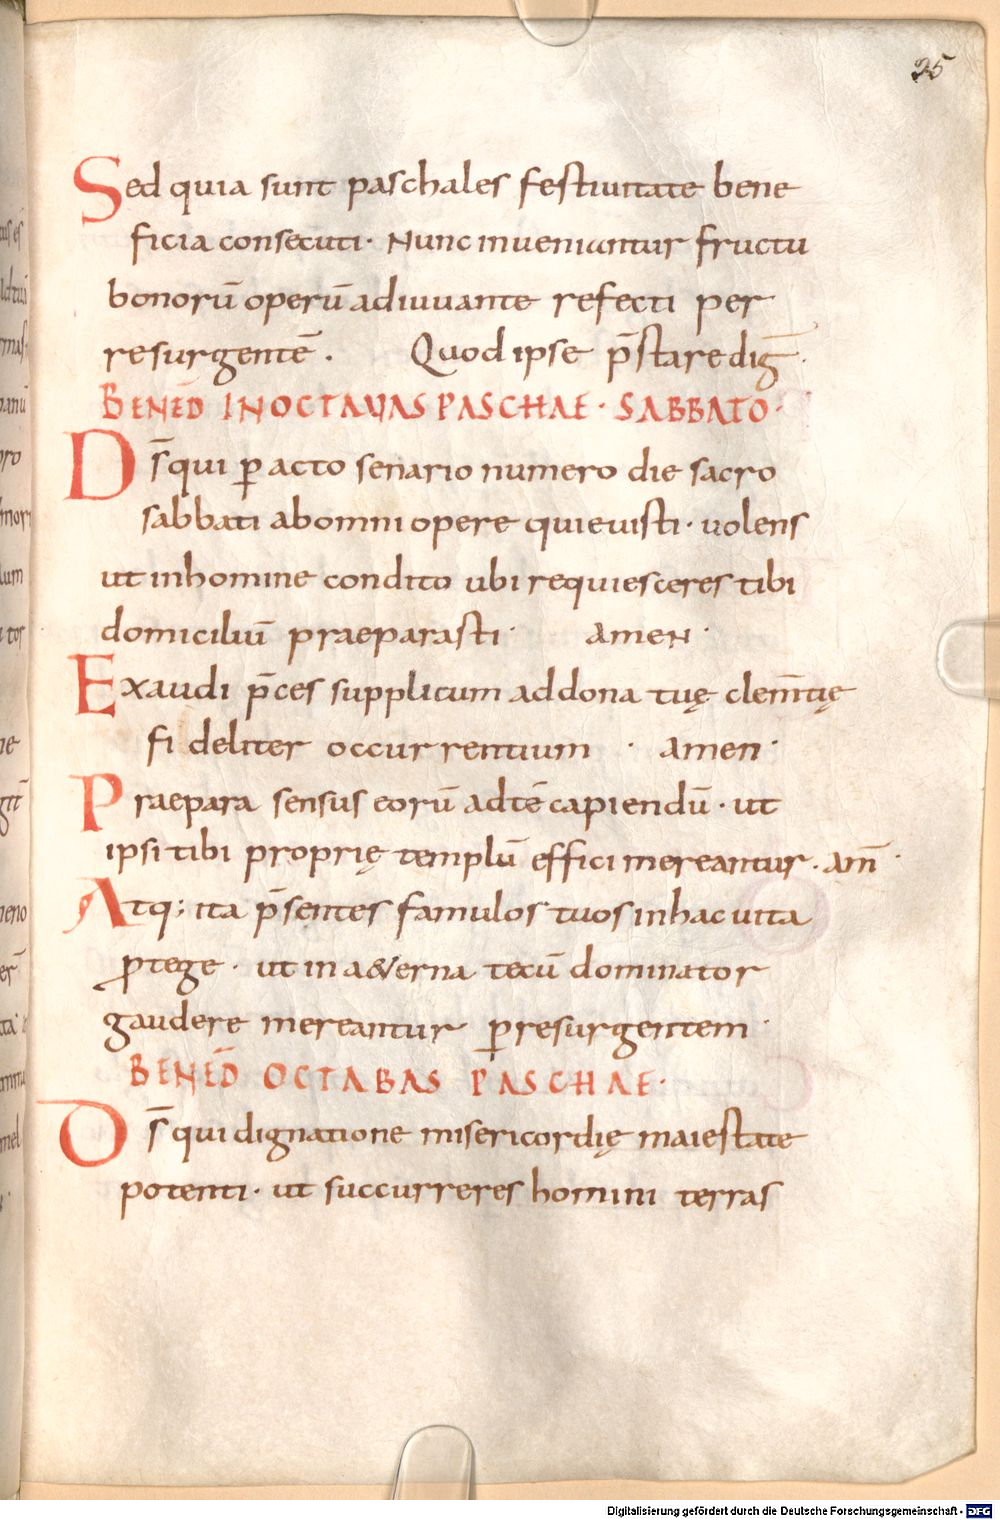 25
Sed quia sunt paschales festiuitate bene
ficia consecuti · Nunc inueniantur fructu
bonorū operū adiuuante refecti per
resurgentē . Quod ipse p̄stare diḡ ·
BENED̄ IN OCTAUAS PASCHAE · SABBATO ·
Ds̄ qui ꝑ acto senario numero die sacro
sabbati ab omni opere quieuisti · uolens
ut in homine condito ubi requiesceres tibi
domiciliū praeparasti · amen ·
Exaudi p̄ces supplicum ad dona tuę clem̄tię
fi deliter occur rentium · amen ·
Praepara sensus eorū ad tē capiendū · ut
ipsi tibi proprię templū effici mereantur · am̄ ·
Atq; ita p̄sentes famulos tuos in hac uita
ꝓtege · ut in a&erna tecū dominator
gaudere mereantur ꝑ resurgentem ·
BENED̄ OCTABAS PASCHAE ·
Ds̄ qui dignatione misericordię maiestate
potenti · ut succurreres homini terras
Digitalisierung gefördert durch die Deutsche Forschungsgemeinschaft - DFG